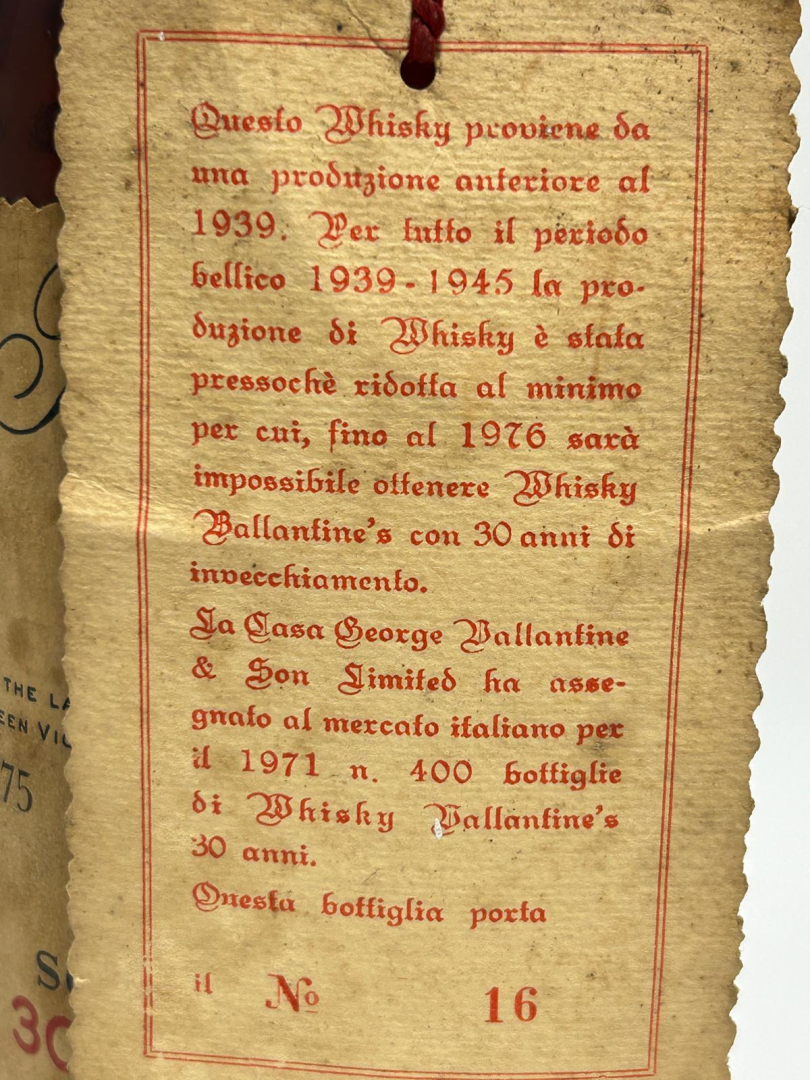 Questo Whisky proviene da
una produzione anteriore al
1939. Per tutto il periodo
bellico 1939-1945 la pro-
duzione di Whisky è stata
pressochè ridotta al minimo
per cui, fino al 1976 sarà
impossibile ottenere Whisky
Ballantine's con 30 anni di
invecchiamento.
La Casa George Ballantine
& Son Limited ha asse-
gnato al mercato italiano per
il 1971 n. 400 bottiglie
di Whisky Ballantine's
30 anni.
Questa bottiglia porta
il No 16
THE
75
30